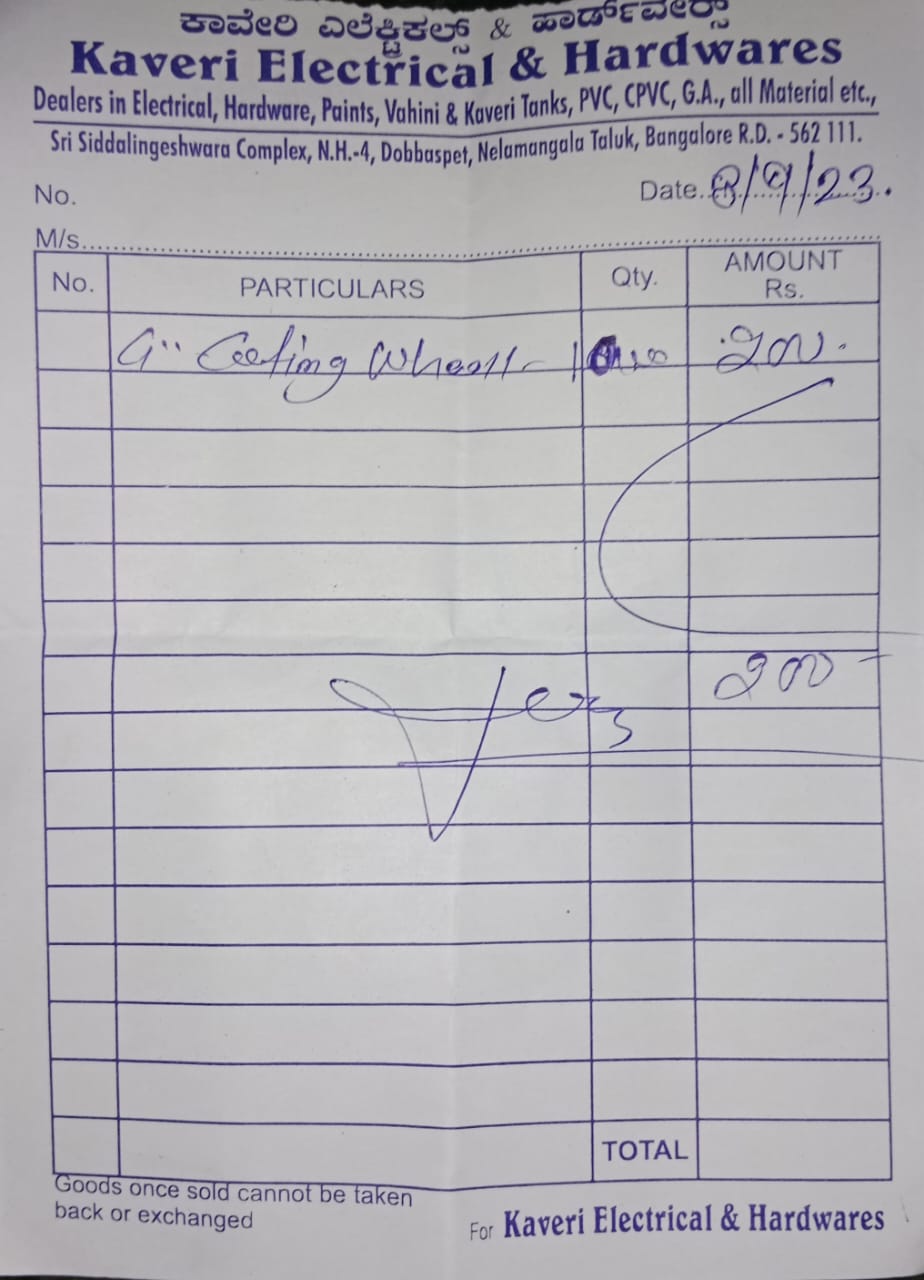 ಕಾವೇರಿ ಎಲೆಕ್ಟ್ರಿಕಲ್ಸ್ & ಹಾರ್ಡ್‌ವೇರ್ಸ್
Kaveri Electrical & Hardwares
Dealers in Electrical, Hardware, Paints, Vahini & Kaveri Tanks, PVC, CPVC, G.A., all Material etc.,
Sri Siddalingeshwara Complex, N.H.-4, Dobbaspet, Nelamangala Taluk, Bangalore R.D. - 562 111.
No. Date. 8/9/23.
M/s.
No. PARTICULARS Qty. AMOUNT Rs.
Wheell - 200.
200
TOTAL
Goods once sold cannot be taken
back or exchanged
For Kaveri Electrical & Hardwares